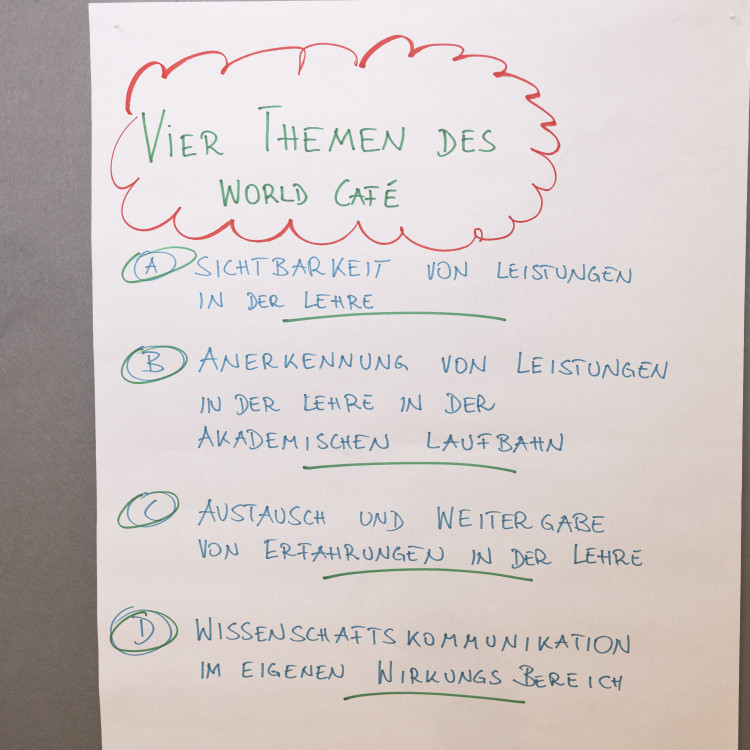 VIER THEMEN DES
WORLD CAFÉ
A SICHTBARKEIT VON LEISTUNGEN
IN DER LEHRE
B ANERKENNUNG VON LEISTUNGEN
IN DER LEHRE IN DER
AKADEMISCHEN LAUFBAHN
C AUSTAUSCH UND WEITERGABE
VON ERFAHRUNGEN IN DER LEHRE
D WISSENSCHAFTSKOMMUNIKATION
IM EIGENEN WIRKUNGSBEREICH